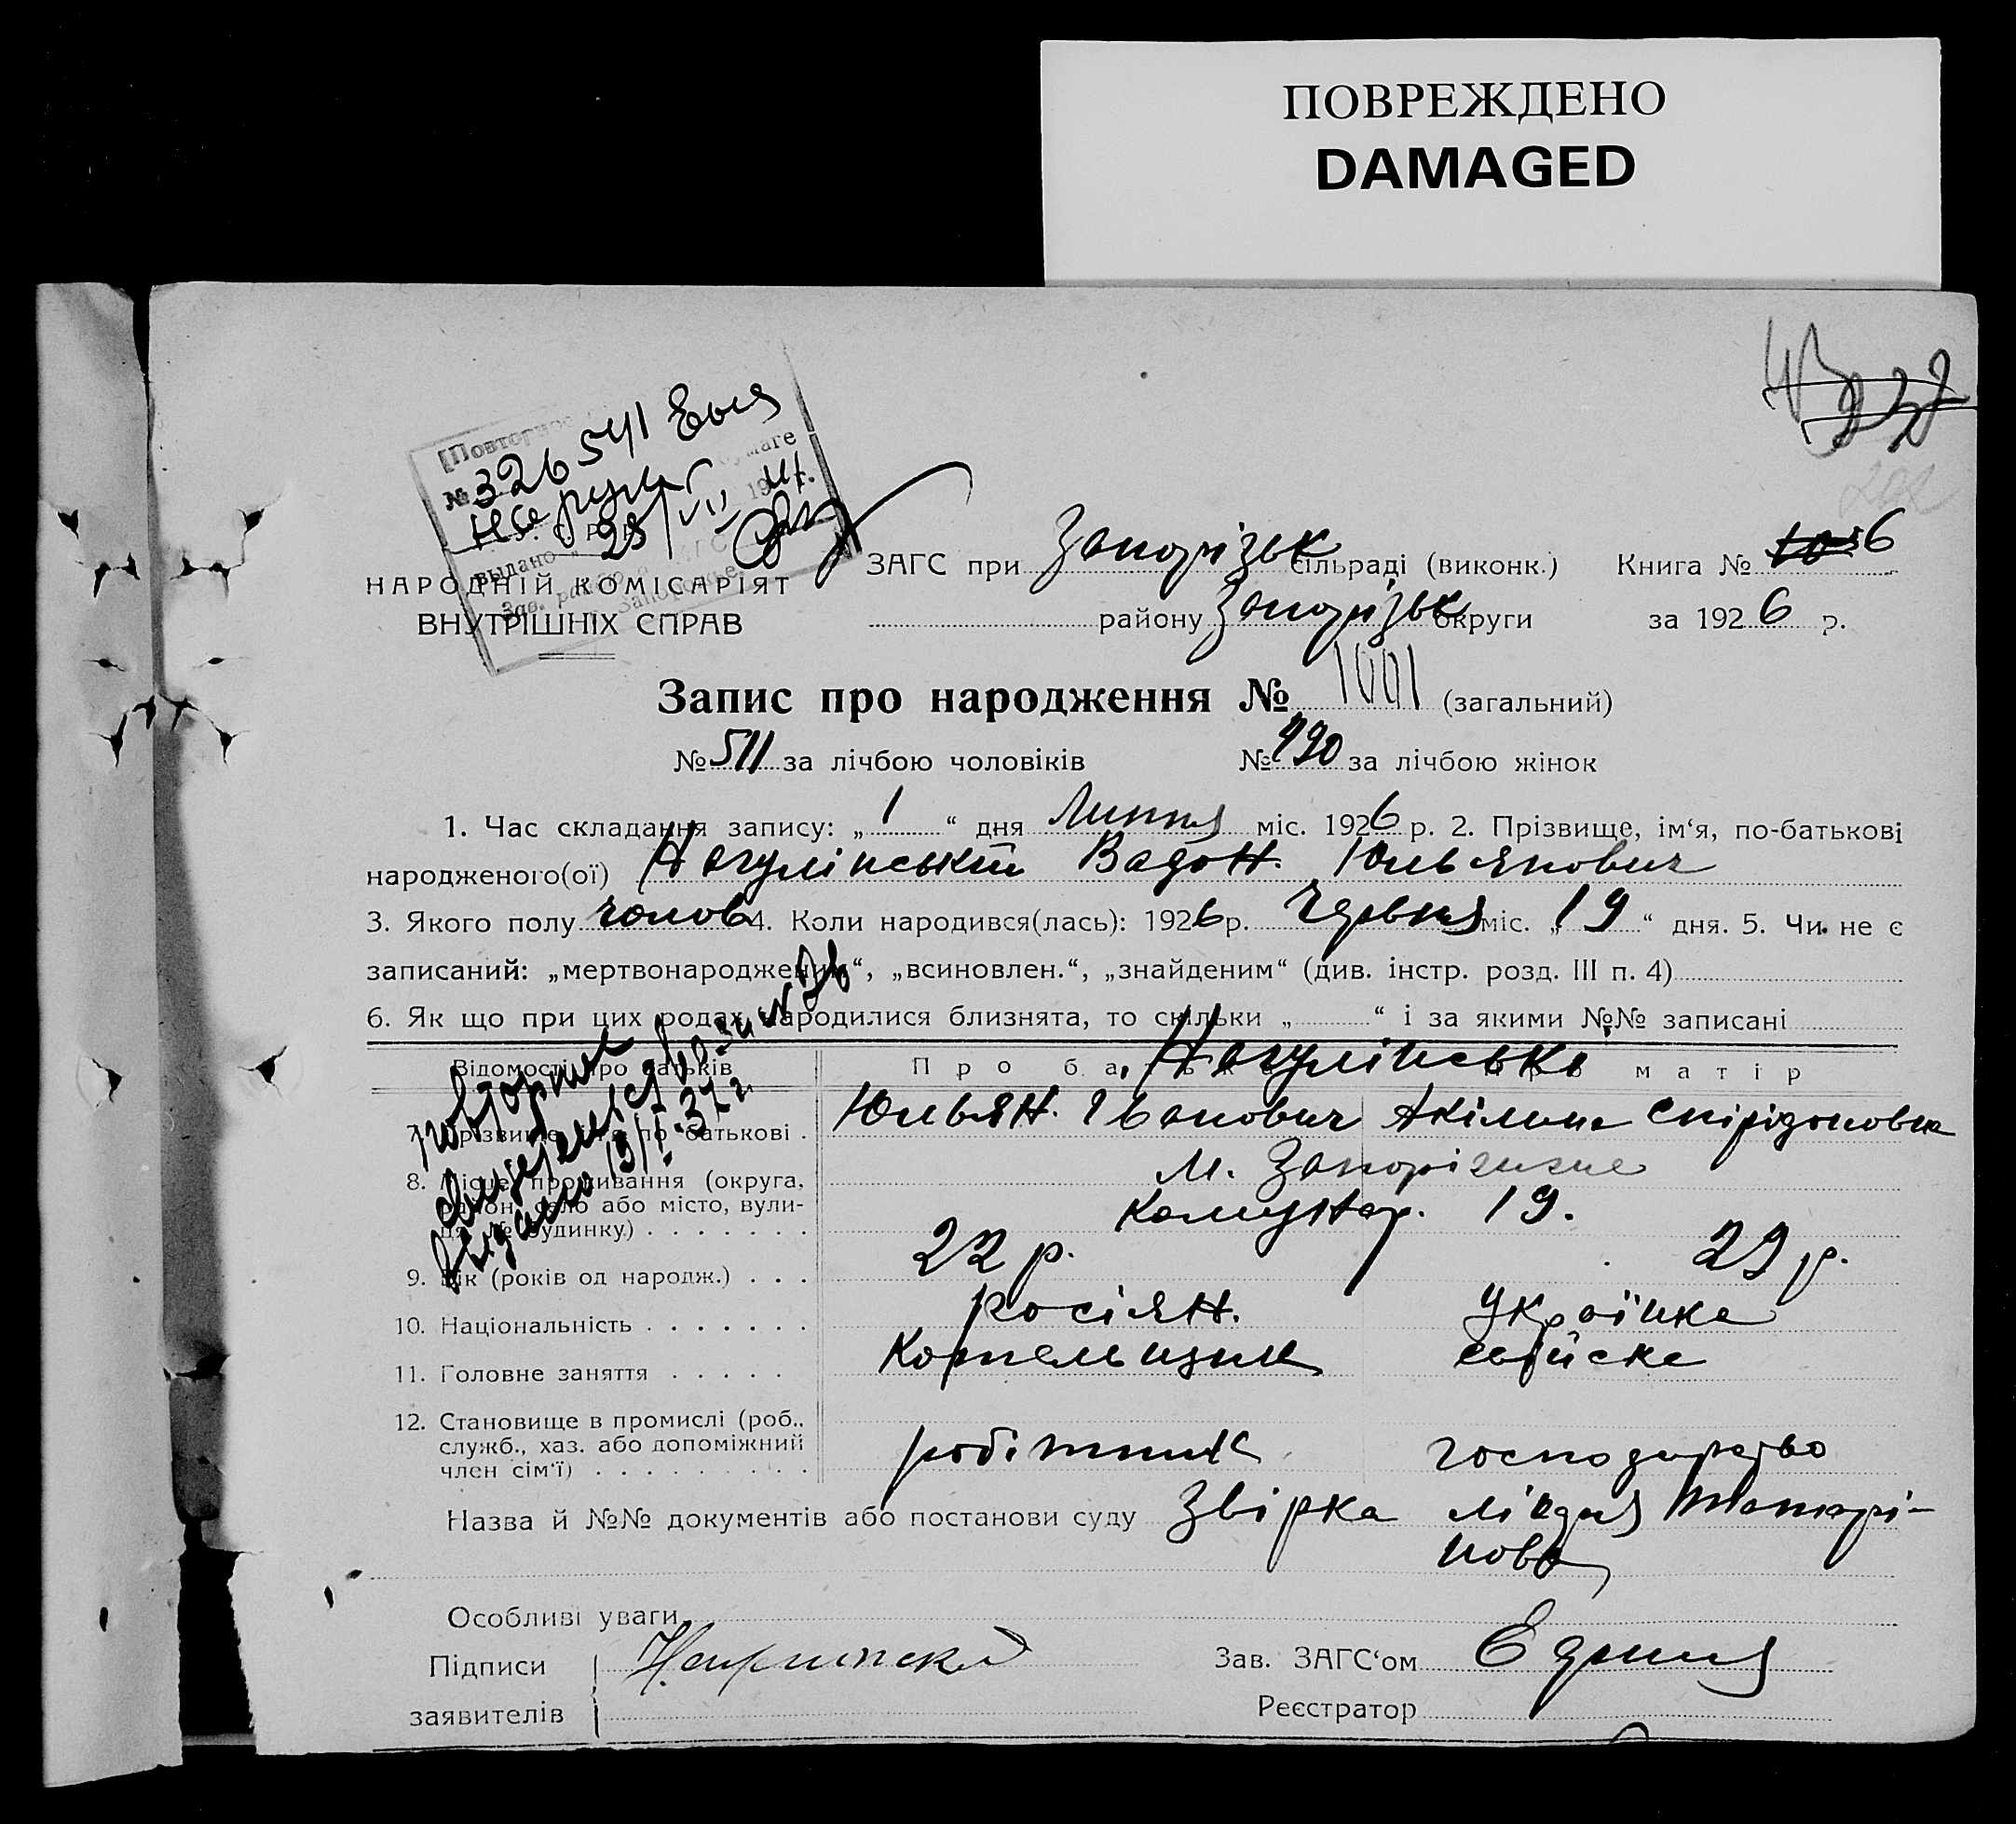 ПОВРЕЖДЕНО
DAMAGED
[Повторное
№ 326541
25/VII 19
выдано
НАРОДНІЙ КОМІСАРІЯТ
ВНУТРІШНІХ СПРАВ
ЗАГС при Запорізьк сільраді (виконк.) Книга № 6
району Запорізьк округи за 1926 р.
Запис про народження № 1001 (загальний)
№ 511 за лічбою чоловіків № 490 за лічбою жінок
1. Час складання запису: „ 1 “ дня Липня міс. 1926 р. 2. Прізвище, ім‘я, по-батькові
народженого(ої) Нагулінський Вадон. Юльянович
3. Якого полу чолов 4. Коли народився(лась): 1926 р. Червня міс. „ 19 “ дня. 5. Чи не є
записаний: „мертвонародженим“, „всиновлен.“, „знайденим“ (див. інстр. розд. III п. 4)
6. Як що при цих родах народилися близнята, то скільки „ “ і за якими №№ записані
Відомості про батьків Про батька Про матір
Нагулінські
7. Прізвище, ім‘я, по батькові . Юльян. Іванович Акіліна Спірідоновна
8. Місце проживання (округа, район, село або місто, вули-ця, № будинку) . . . . . . .
м. Запоріжжє
Комунар. 19.
9. Вік (років од народж.) . . . 22 р. 29 р.
10. Національність . . . . . . . росіян. Украінка
11. Головне заняття . . . . . Котельщик
12. Становище в промислі (роб., служб., хаз. або допоміжний член сім‘ї) . . . . . . . . . робітник господарство
повторное
свидетельство
выдано 19/I-37 г.
Назва й №№ документів або постанови суду Звірка Лідия Татарі-
нова
Особливі уваги
Підписи
заявителів
Зав. ЗАГС‘ом
Реєстратор